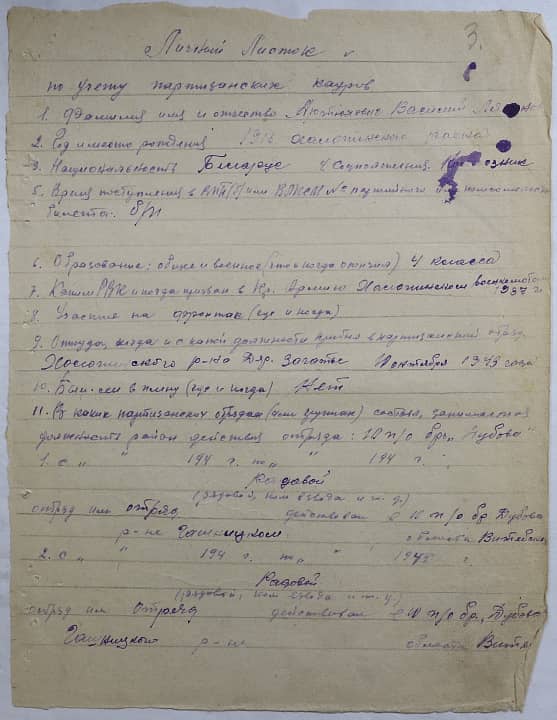 3.
Личный Листок
по учету партизанских кадров
1. Фамилия имя и отчество Василий
2. Год и место рождения 1918 Холопиничского района
3. Национальность Беларус 4 Соцположение
5. Время поступления в ВКП/б/ или ВЛКСМ № партийного или комсомольск
билета. б/п
6. Образование: общее и военное (что и когда окончил) 4 класса
7. Каким РВК и когда призван в Кр. Армию военкоматом
1937 г.
8. Участие на фронтах (где и когда)
9. Откуда, когда и с какой должности прибыл в партизанский отряд
р-на Дер. октября 1943 года
10. Был-ли в плену (где и когда) Нет
11. В каких партизанских отрядах (или группах) состоял, занимаемая
должность район действия отряда: 10 п/о бр. Дубова"
1. с " " 194 г. по " " 194 г.
Рядовой
(рядовой, ком взвода и т. д.)
отряд им отряд действовал в 10 п/о бр Дубова
р-не Чашницком области Витебск
2. с " " 194 г. по " 194 г.
Рядовой
(рядовой, ком взвода и т. д.)
отряд им отряд действовал в 10 п/о бр. Дубова
Чашницком р-не области Витеб